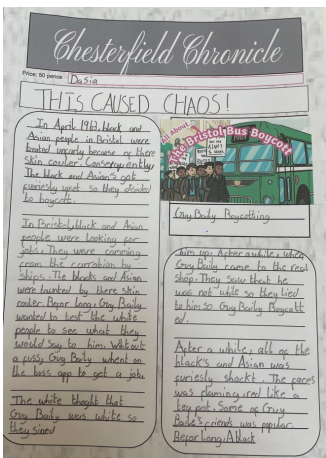 Chesterfield Chronicle
Price: 50 pence
Dasia
THIS CAUSED CHAOS!
In April 1963, black and
Asian people in Bristol were
treated unfarly because of there
Skin couler. Consequently
The black and Asian's got
furiesly upset so they disided
to boycott.
In Bristol, black and Asian
people were looking for
jobs. They were comming
from the carribian by
ships. The blacks and Asian
were taunted by there skin
couler. Befor long, Guy Baily
wanted to test the white
people to see what they
would say to him. Without
a fuss, Guy Baily whent on
the bass app to get a job.
The white thoght that
Guy Baily was white so
they sined
All About...
The Bristol Bus Boycott
Guy Baily Boycotting
him up. After a while, when
Guy Baily came to the real
shop. They saw that he
was not white so they lied
to him so Guy Baily Boycott
ed.
After a white, all of the
black's and Asian was
furiesly shockt. The faces
was flaming red like a
tea pot. Some of Guy
Baile's friends was populer.
Befor Long, A black